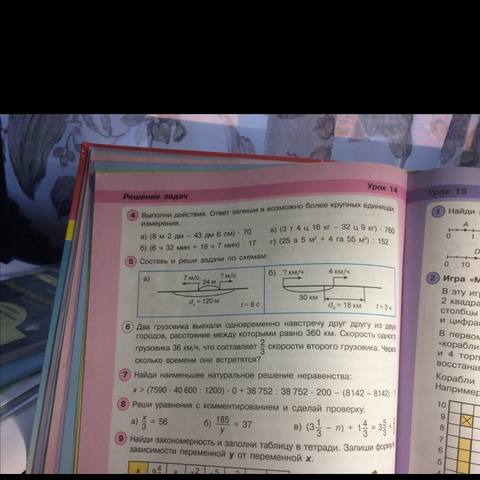 Решение задач
Урок 14
4 Выполни действия. Ответ запиши в возможно более крупных единицах
измерения.
а) (8 м 2 дм – 43 дм 6 см) · 70
в) (3 т 4 ц 16 кг – 32 ц 9 кг) · 760
б) (6 ч 32 мин + 18 ч 7 мин) : 17
г) (25 а 5 м² + 4 га 55 м²) : 152
5 Составь и реши задачи по схемам:
а)
? м/с
? м/с
24 м
d₀ = 120 м
t = 8 с
б)
? км/ч
4 км/ч
30 км
d₃ = 18 км
t = 3 ч
6 Два грузовика выехали одновременно навстречу друг другу из двух
городов, расстояние между которыми равно 360 км. Скорость одного
грузовика 36 км/ч, что составляет 2/3 скорости второго грузовика. Через
сколько времени они встретятся?
7 Найди наименьшее натуральное решение неравенства:
x > (7590 · 40 600 : 1200) · 0 + 38 752 : 38 752 · 200 – (8142 – 8142) :
8 Реши уравнения с комментированием и сделай проверку:
а) x/3 = 56
б) 185/y = 37
в) (3 1/3 – n) + 1 4/3 = 3 5/3
9 Найди закономерность и заполни таблицу в тетради. Запиши формулу
зависимости переменной y от переменной x.
x
Урок 15
1 Найди
A
0 1
0 10
2 Игра «М
В эту иг
2 квадра
столбцы
и цифра
В первом
«корабли
и 4 торп
восстанав
Корабли
Например
10
9
8
7
6
5
4